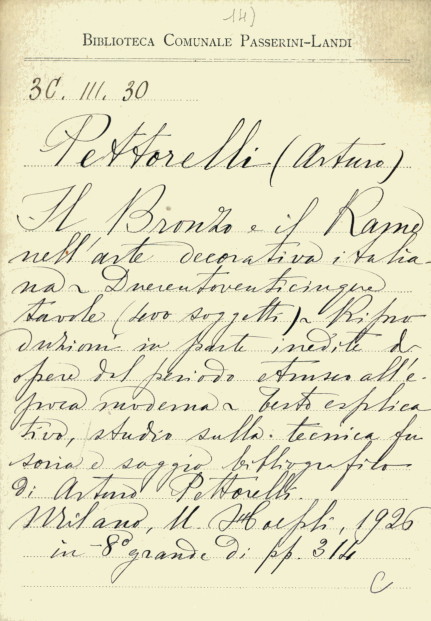 14)
BIBLIOTECA COMUNALE PASSERINI-LANDI
3C. III. 30
Pettorelli (Arturo)
Il Bronzo e il Rame
nell'arte decorativa italia-
na ~ Duecentoventicinque
tavole (400 soggetti) ~ Ripro
duzioni in parte inedite di
opere dal periodo etrusco all'e-
poca moderna ~ testo esplica
tivo, studio sulla tecnica fu
soria e saggio bibliografico
di Arturo Pettorelli.
Milano, U. Hoepli, 1926
in-8° grande di pp. 314
C